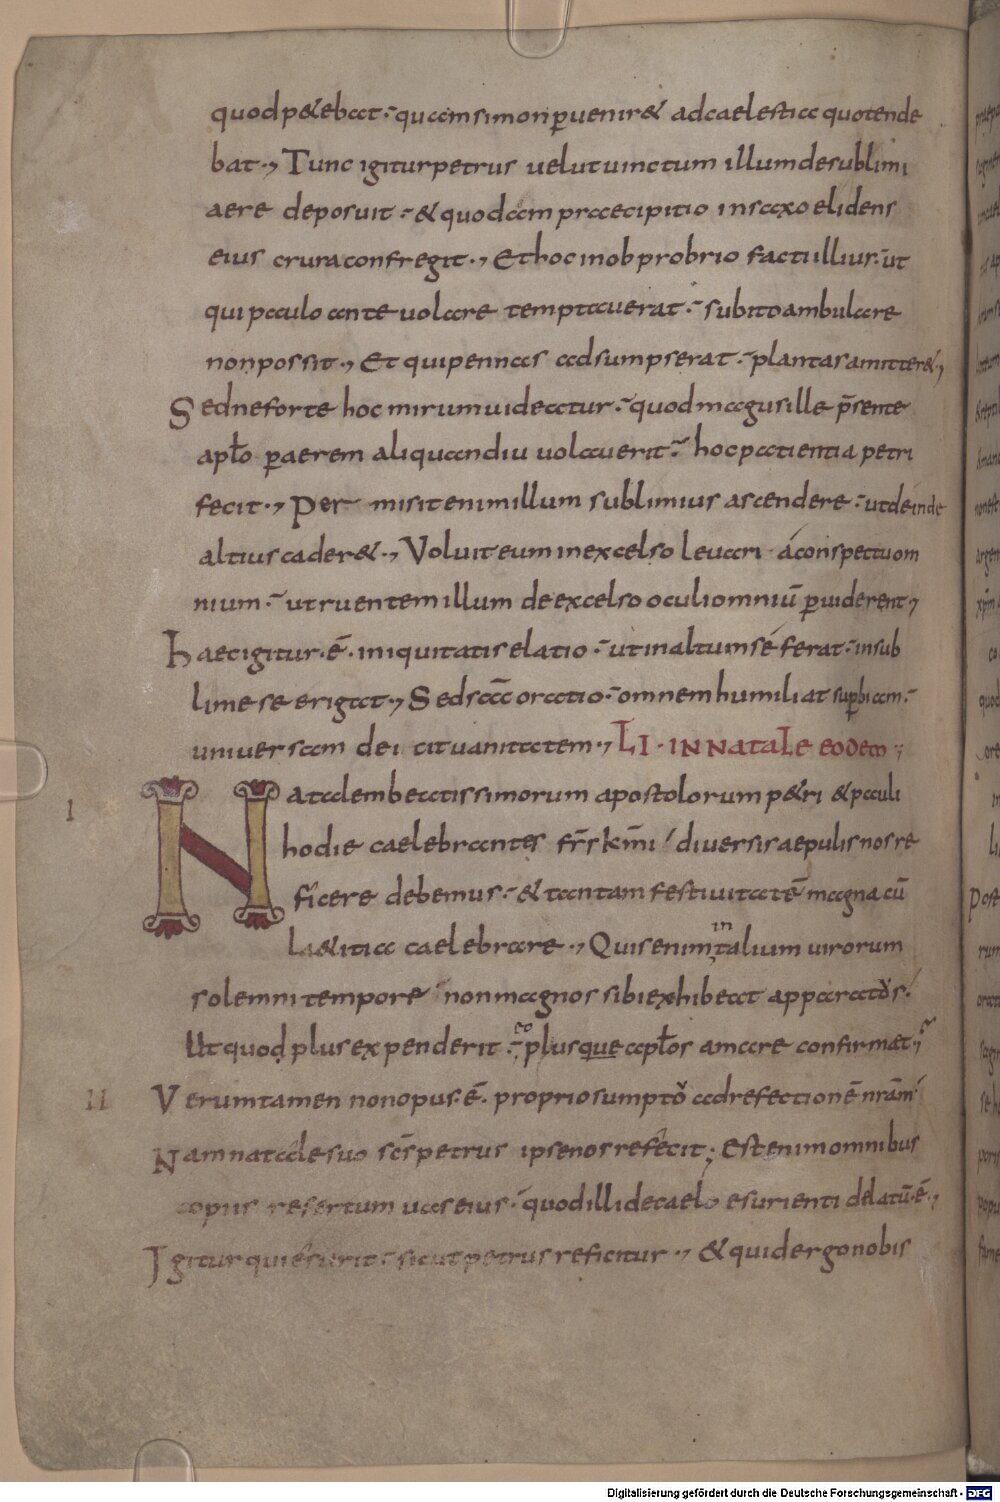 quod petebat· quam simon pervenir& ad caelestia quo tende
bat·, Tunc igitur petrus velut vinctum illum de sublimi
aere deposuit· & quodam praecipitio in saxo elidens
eius crura confregit·, Et hoc in ob probrio facti illius· ut
qui paulo ante volare temptaverat· subito ambulare
non possit·, Et qui pennas adsumpserat· plantas amitter&·,
Sed ne forte hoc mirum videatur· quod magus ille p̄sente
apl̄o ꝑ aerem aliquandiu volaverit· hoc patientia petri
fecit·, Per misit enim illum sublimius ascendere· ut deinde
altius cader&·, Voluit eum in excelso levari á conspectu om
nium· ut ruentem illum de excelso oculi omniū ꝑviderent,
Haec igitur·ē· iniquitatis elatio· ut in altum sé ferat· in sub
lime se erigat·, Sed sc̄a oratio· omnem humiliat suꝑbiam·
universam dei cit vanitatem·, LI· IN NATALE EODEM,
I NATalem beatissimorum apostolorum p&ri & pauli
hodie caelebrantes fr̄s km̄i / diversis aepulis nos re
ficere debemus· & tantam festivitatē magna cū
la&itia caelebrare·, Quis enim in talium virorum
solemni tempore non magnos sibi exhibeat apparatos·
Ut quod plus expenderit· eo plusque apl̄os amare confirmæt,
II Verumtamen non opus·ē· proprio sumpto ad refectionē nr̄am
Nam natale suo sc̄s petrus ipse nos refecit; Est enim omnibus
copiis refertum vas eius· quod illi de caelo esurienti delatū·ē·,
Igitur qui esurit· sicut petrus reficitur·, & quid ergo nobis
Digitalisierung gefördert durch die Deutsche Forschungsgemeinschaft - DFG